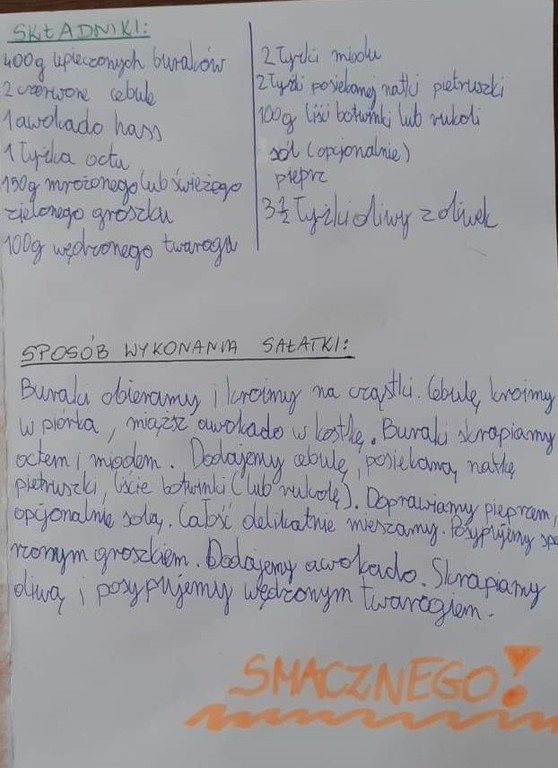 SKŁADNIKI:
400g upieczonych buraków
2 czerwone cebule
1 awokado hass
1 łyżka octu
150g mrożonego lub świeżego
zielonego groszku
100g wędzonego twarogu
2 łyżki miodu
2 łyżki posiekanej natki pietruszki
100g liści botwinki lub rukoli
sól (opcjonalnie)
pieprz
3 ½ łyżki oliwy z oliwek
SPOSÓB WYKONANIA SAŁATKI:
Buraki obieramy i kroimy na cząstki. Cebulę kroimy
w piórka, miąższ awokado w kostkę. Buraki skrapiamy
octem i miodem. Dodajemy cebulę, posiekaną natkę
pietruszki, liście botwinki (lub rukolę). Doprawiamy pieprzem,
opcjonalnie solą. Całość delikatnie mieszamy. Posypujemy spa
rzonym groszkiem. Dodajemy awokado. Skrapiamy
oliwą i posypujemy wędzonym twarogiem.
SMACZNEGO!